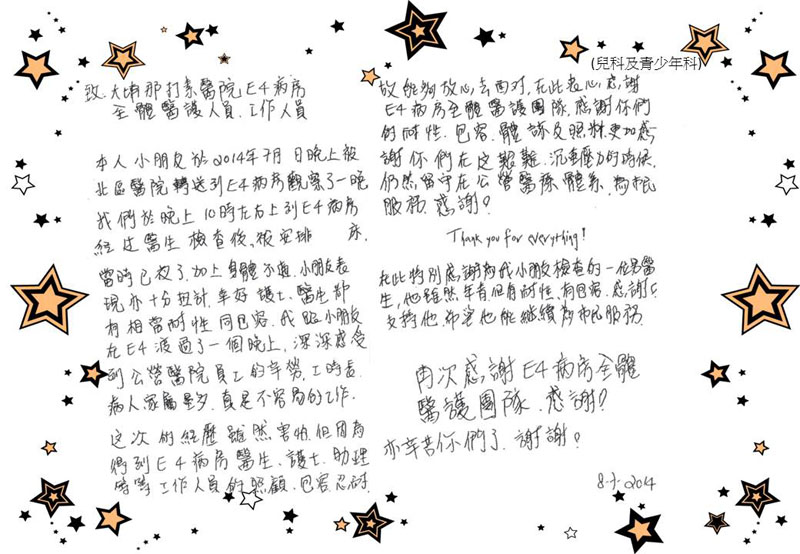 (兒科及青少年科)
致.大埔那打素醫院E4病房
全體醫護人員.工作人員
本人小朋友於2014年7月 日晚上被
北區醫院轉送到E4病房觀察了一晚
我們於晚上10時左右上到E4病房
經過醫生檢查後.被安排 床.
當時已夜了.加上身體不適.小朋友表
現亦十分扭計.幸好護士.醫生都
有相當耐性同包容.我跟小朋友
在E4渡過了一個晚上.深深感受
到公營醫院員工的辛勞.工時長
病人家屬 真是不容易的工作.
這次的經歷雖然害怕.但因為
得到E4病房醫生.護士.助理
等等工作人員的照顧.包容忍耐.
故能夠放心去面对.在此衷心感謝
E4病房全體醫護團隊.感謝你們
的耐性.包容.體諒及照料.更加感
謝你們在這艱難.沉重壓力的時候.
仍然留守在公營醫療體系.為市民
服務.感謝!
Thank you for everything!
在此特別感謝為我小朋友檢查的一位男醫
生,他雖然年青但有耐性.有包容.感謝
支持他.希望他能繼續為市民服務.
再次感謝E4病房全體
醫護團隊.感謝!
亦辛苦你們了.謝謝!
8-7-2014